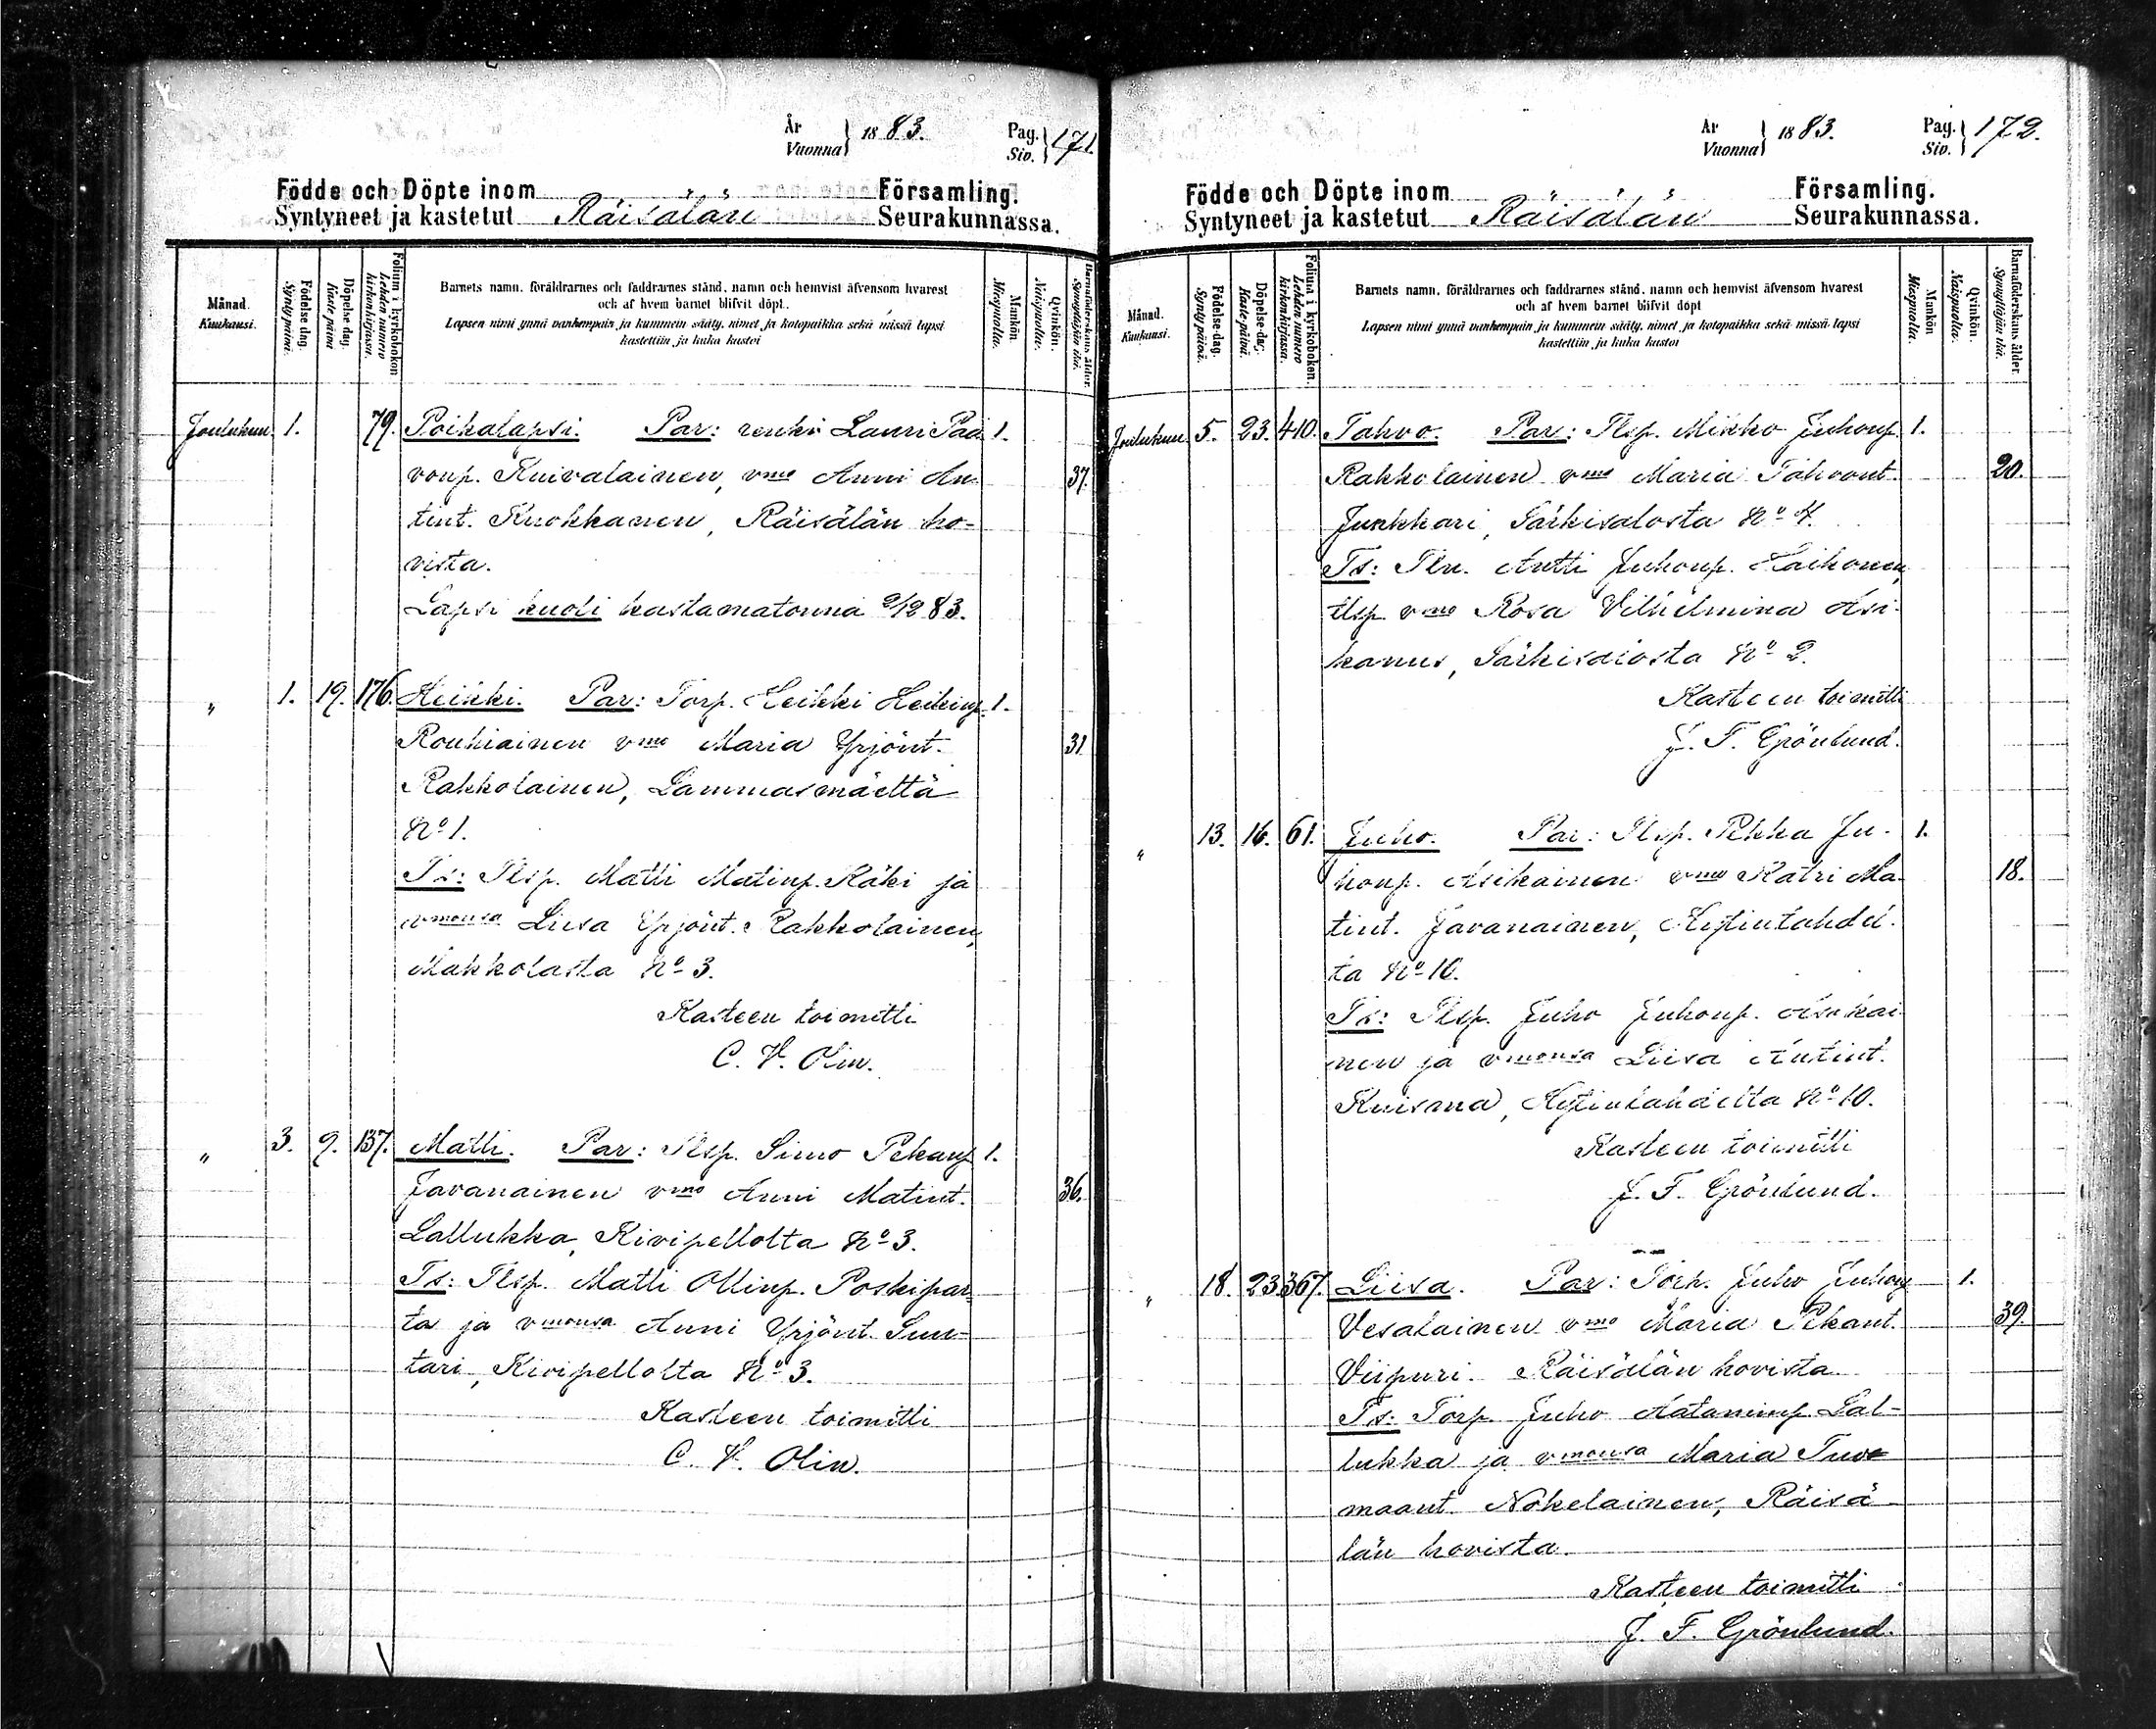 År Vuonna } 1883. Pag. Siv. } 171.
Födde och Döpte inom Församling.
Syntyneet ja kastetut Räisälän Seurakunnassa.
Månad. Kuukausi.
Födelse dag. Syntypäivä.
Döpelse dag. Kastepäivä
Folium i kyrkoboken Lehden numero kirkonkirjassa.
Barnets namn, föräldrarnes och faddrarnes stånd, namn och hemvist äfvensom hvarest
och af hvem barnet blifvit döpt.
Lapsen nimi ynnä vanhempain ja kummein sääty, nimet ja kotopaikka sekä missä lapsi
kastettiin ja kuka kastoi
Mankön Miespuolta.
Qvinkön. Naispuolta.
Barnaföderskans ålder. Synnyttäjän ikä.
Joulukuu 1. 79. Poikalapsi. Par: renki Lauri Paa 1.
vonp. Kuivalainen, vmo Anni An- 37.
tint. Kuokkanen, Räisälän ho-
vista.
Lapsi kuoli kastamatonna 2/12 83.
" 1. 19. 176. Heikki. Par: Torp. Heikki Heikinp. 1.
Rouhiainen vmo Maria Yrjönt. 31
Rakkolainen, Lammasmäeltä
No 1.
Ts: Tlsp. Matti Matinp. Käki ja
vmonsa Liisa Yrjönt. Rakkolainen,
Makkolasta No 3.
Kasteen toimitti
C. V. Olin.
" 3. 9. 137. Matti. Par: Tlsp. Simo Pekanp 1.
Javanainen vmo Anni Matint. 36.
Lallukka, Kivipellolta No 3.
Ts: Tlsp. Matti Ollinp. Poskipar-
ta ja vmonsa Anni Yrjönt. Sun-
tari, Kivipellolta No 3.
Kasteen toimitti
C. V. Olin.
År Vuonna } 1883. Pag. Siv. } 172.
Födde och Döpte inom Församling.
Syntyneet ja kastetut Räisälän Seurakunnassa.
Månad. Kuukausi.
Födelse-dag. Syntypäivä.
Döpelse-dag. Kaste-päivä.
Folium i kyrkoboken. Lehden numero kirkonkirjassa.
Barnets namn, föräldrarnes och faddrarnes stånd, namn och hemvist äfvensom hvarest
och af hvem barnet blifvit döpt
Lapsen nimi ynnä vanhempain ja kummein sääty, nimet ja kotopaikka sekä missä lapsi
kastettiin ja kuka kastoi
Mankön Miespuolta.
Qvinkön. Naispuolta.
Barnaföderskans ålder. Synnyttäjän ikä.
Joulukuu 5. 23. 410. Tahvo. Par: Tlsp. Mikko Juhonp. 1.
Rakkolainen vmo Maria Tahvont. 20.
Junkkari, Särkisalosta No 4.
Ts: Tln. Antti Juhonp. Laihonen,
tlsp. vmo Rosa Vilhelmina Asi-
kanus, Särkisalosta No 2.
Kasteen toimitti
J. F. Grönlund.
" 13. 16. 61. Juho. Par: Tlsp. Pekka Ju- 1.
honp. Asikainen vmo Katri Ma- 18.
tint. Javanainen, Hytinlahdel-
ta No 10.
Ts: Tlsp. Juho Juhonp. Asikai
nen ja vmonsa Liisa Antint.
Kuisma, Hytinlahdelta No 10.
Kasteen toimitti
J. F. Grönlund.
" 18. 23. 367. Liisa. Par: Torp. Juho Juhonp 1.
Vesalainen vmo Maria Pekant. 39.
Viipuri. Räisälän hovista
Ts: Torp. Juho Aataminp. Lal-
lukka ja vmonsa Maria Tuo-
maant. Nokelainen, Räisä
län hovista.
Kasteen toimitti
J. F. Grönlund.